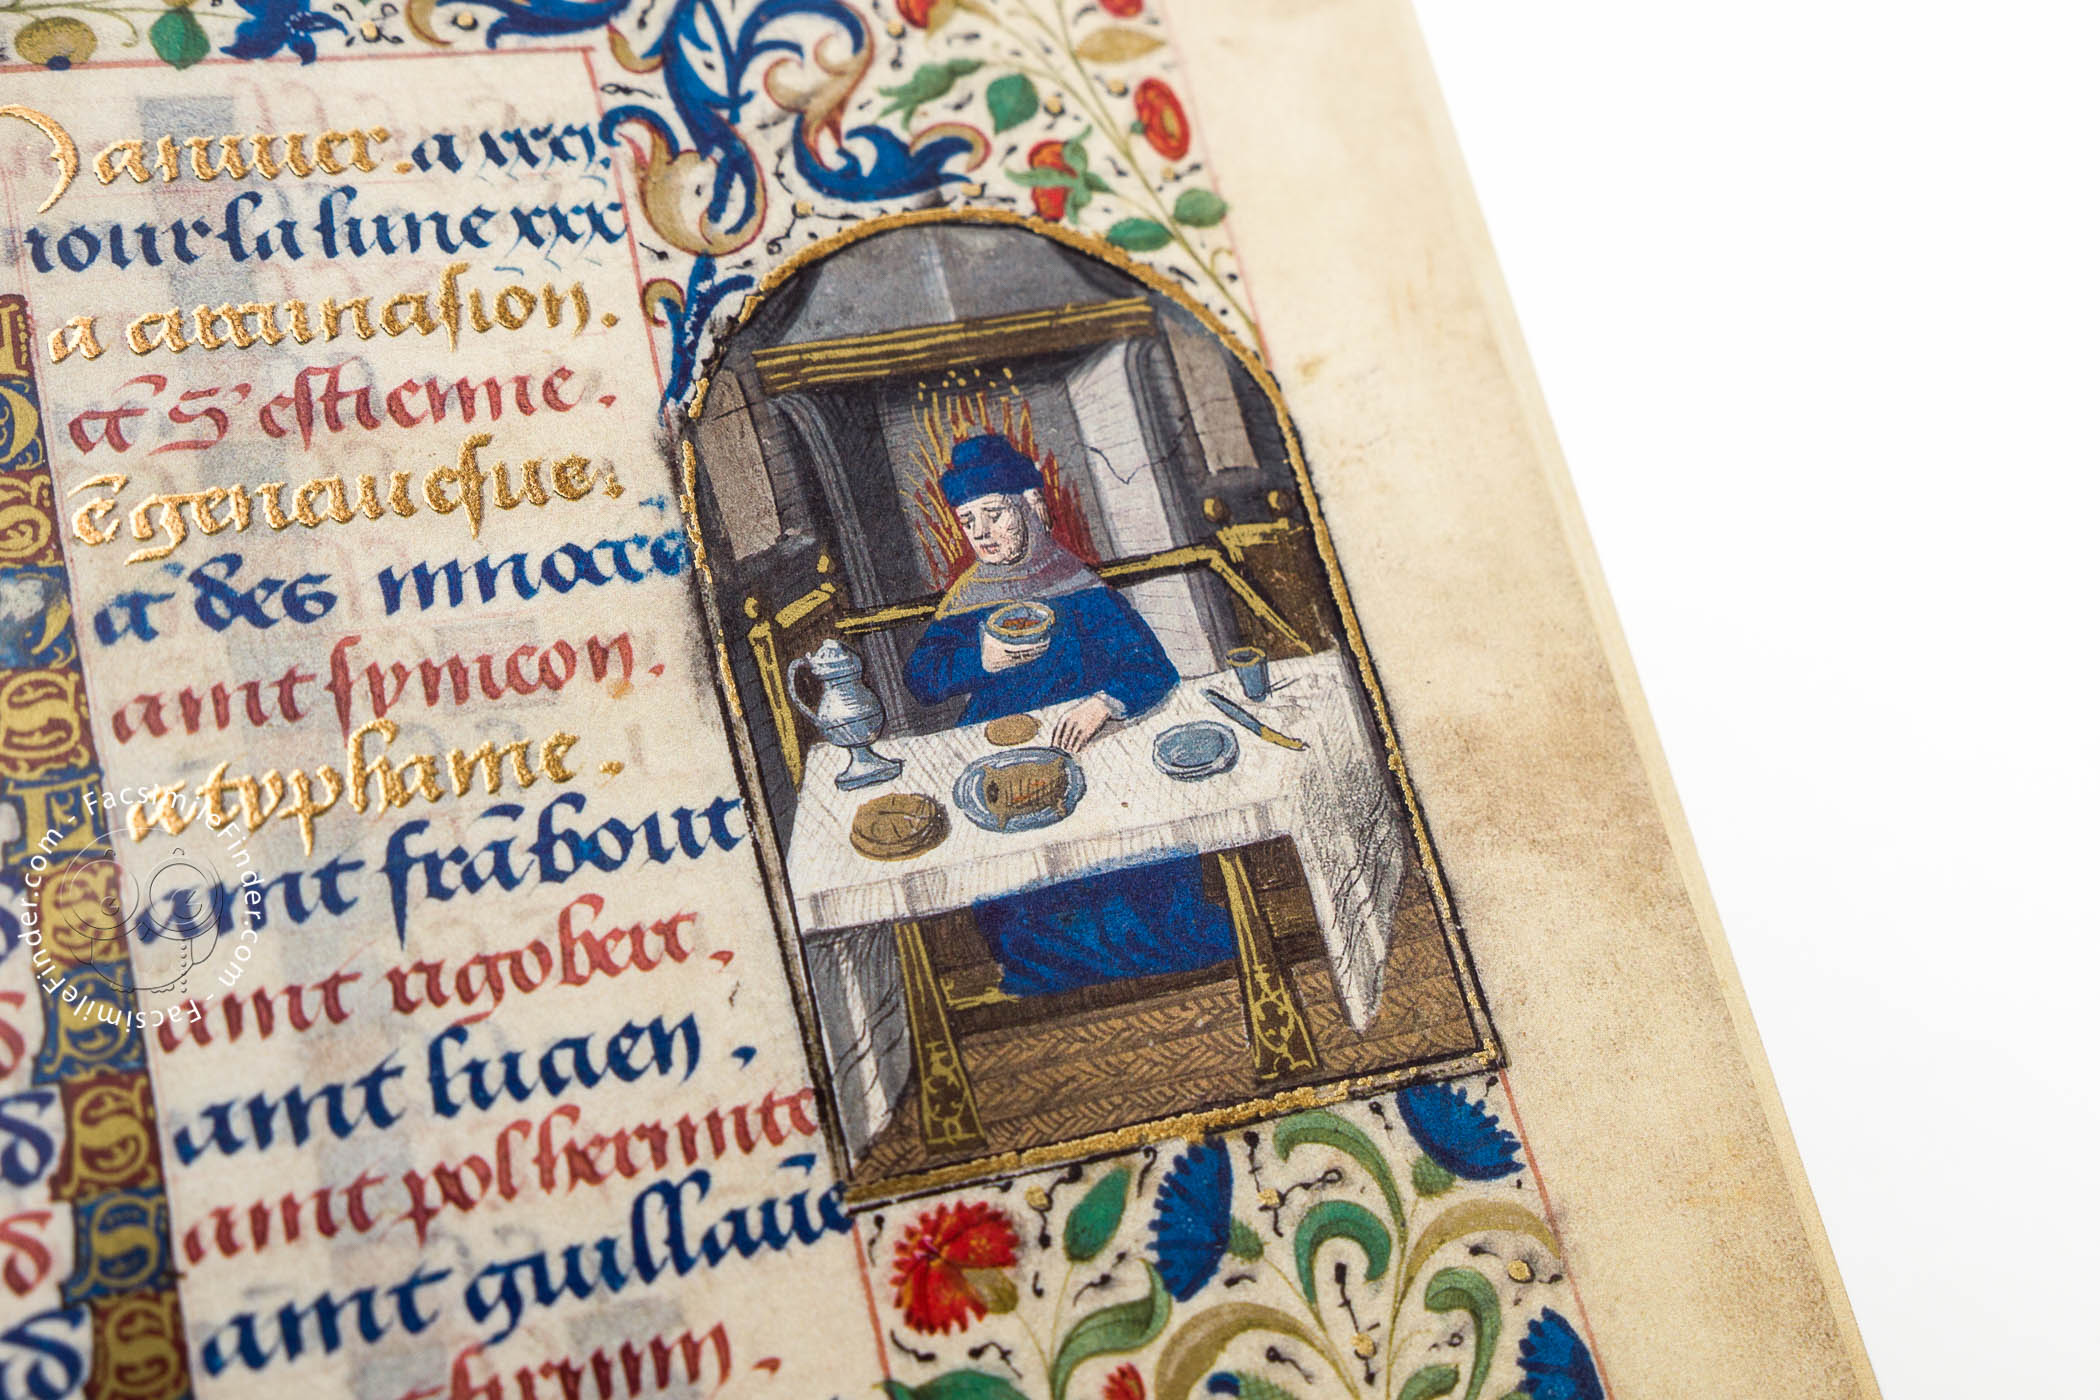 Januier. a xxxj.
iour la lune xxx
a circuncision.
a S' estienne.
ē geneuiesue.
a des innocē
aint symeon.
a typhaine.
aint frābout
aint rigobert,
aint lucien,
aint pol hermite
aint guillaūe
FacsimileFinder.com - FacsimileFinder.com - FacsimileFinder.com